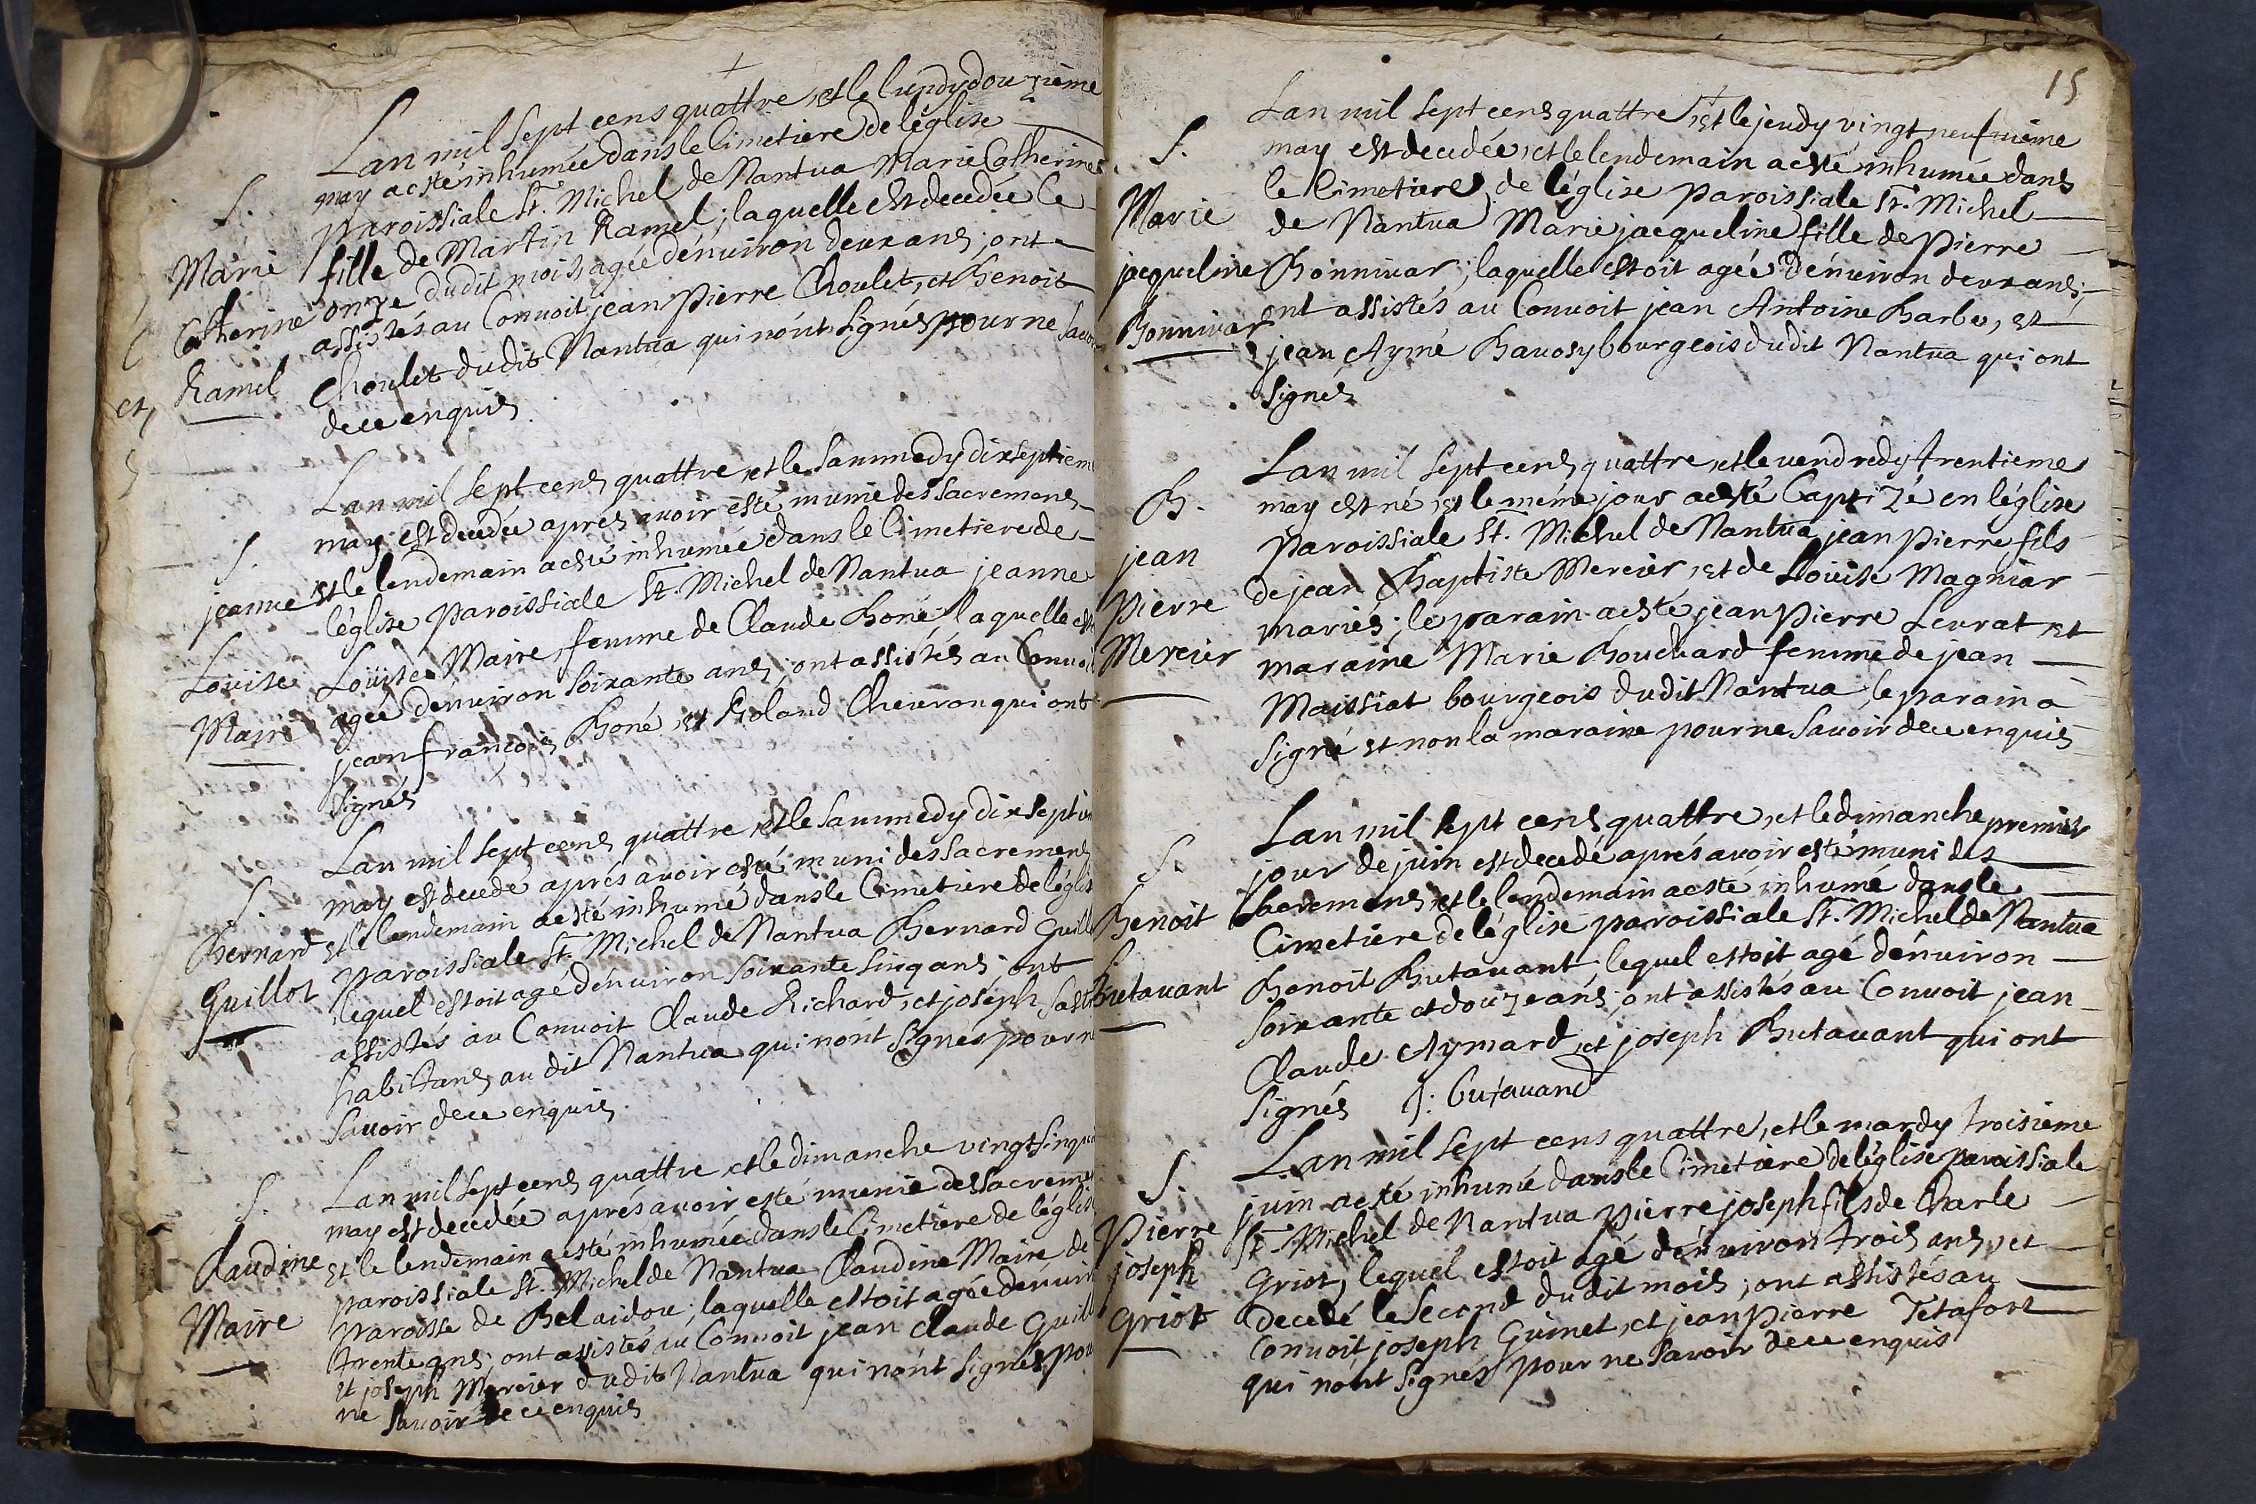 Lan mil sept cens quattre, et le lundy douzième
may a esté inhumée dans le Cimetiere de léglise
S. paroissiale St. Michel de Nantua Marie Catherine
Marie fille de Martin Ramel; laquelle est decedée le
Catherine onze dudit mois agée dénuiron deux ans; ont
assistés au Conuoit jean pierre Choulet, et Benoit
Ramel Choulet dudit Nantua qui nónt signés pour ne sauoir
de ce enquis
Lan mil sept cens quattre, et le sammedy dixseptieme
may est decedée aprés auoir esté munie des sacremens
S. et le lendemain a esté inhumée dans le Cimetiere de
jeanne léglise paroissiale St. Michel de Nantua jeanne
Loüise Loüise Maire, femme de Claude Boné, laquelle
Maire agée denuiron soixante ans; ont assistés au Conuoit
jean françois Boné et Roland Cheuron qui ont
signés
Lan mil sept cens quattre, et le sammedy dixseptieme
may est decedé aprés auoir esté muni des sacremens
S. et le lendemain a esté inhumé dans le Cimetiere de léglise
Bernard paroissiale St. Michel de Nantua Bernard Guillot
Guillot lequel estoit agé dénuiron soixante sinq ans; ont
assistés au Conuoit Claude Richard, et joseph
habitans au dit Nantua qui nónt signés pour ne
sauoir de ce enquis
Lan mil sept cens quattre, et le dimanche vingtsinq
may est decedée aprés auoir esté munie des sacremens
S. et le lendemain a esté inhumée dans le Cimetiere de léglise
Claudine paroissiale St. Michel de Nantua Claudine Maire de
Maire paroisse de Belaidou; laquelle estoit agée dénuiron
trente ans; ont assistés au Conuoit jean claude Guillot
et joseph Mercier dudit Nantua qui nónt signés pour
ne sauoir de ce enquis
15
Lan mil sept cens quattre, et le jeudy vingt neufuième
S. may est decedée, et le lendemain a esté inhumée dans
le Cimetiere de léglise paroissiale St. Michel
Marie de Nantua Marie jacqueline fille de pierre
jacqueline Bonniuar; laquelle estoit agée dénuiron deux ans;
Bonniuar ont assistés au Conuoit jean Antoine Barbe, et
jean Aymé Bauosy bourgeois dudit Nantua qui ont
signés
Lan mil sept cens quattre, et le vendredy trentieme
B. may est né, et le méme jour a esté baptizé en léglise
jean paroissiale St. Michel de Nantua jean pierre fils
pierre de jean Baptiste Mercier, et de Loüise Magniar
Mercier mariés; le parain a esté jean pierre Leurat et
maraine Marie Bouchard femme de jean
Maissiat bourgeois dudit Nantua, le parain a
signé et non la maraine pour ne sauoir de ce enquis
Lan mil sept cens quattre, et le dimanche premier
S. jour de juin est decedé aprés auoir esté muni des
Benoit sacremens, et le lendemain a esté inhumé dans le
Cimetiere de léglise paroissiale St. Michel de Nantua
Butauant Benoit Butauant; lequel estoit agé dénuiron
soixante et douze ans; ont assistés au Conuoit jean
Claude Aymard, et joseph Butauant qui ont
signés J: Butauand
Lan mil sept cens quattre, et le mardy troisieme
S. juin a esté inhumé dans le Cimetiere de léglise paroissiale
Pierre St. Michel de Nantua pierre joseph fils de Charle
joseph Griot, lequel estoit agé dénuiron trois ans, et
griot decedé le second dudit mois; ont assistés au
Conuoit joseph Guinet, et jean pierre Tetafort
qui nónt signés pour ne sauoir de ce enquis